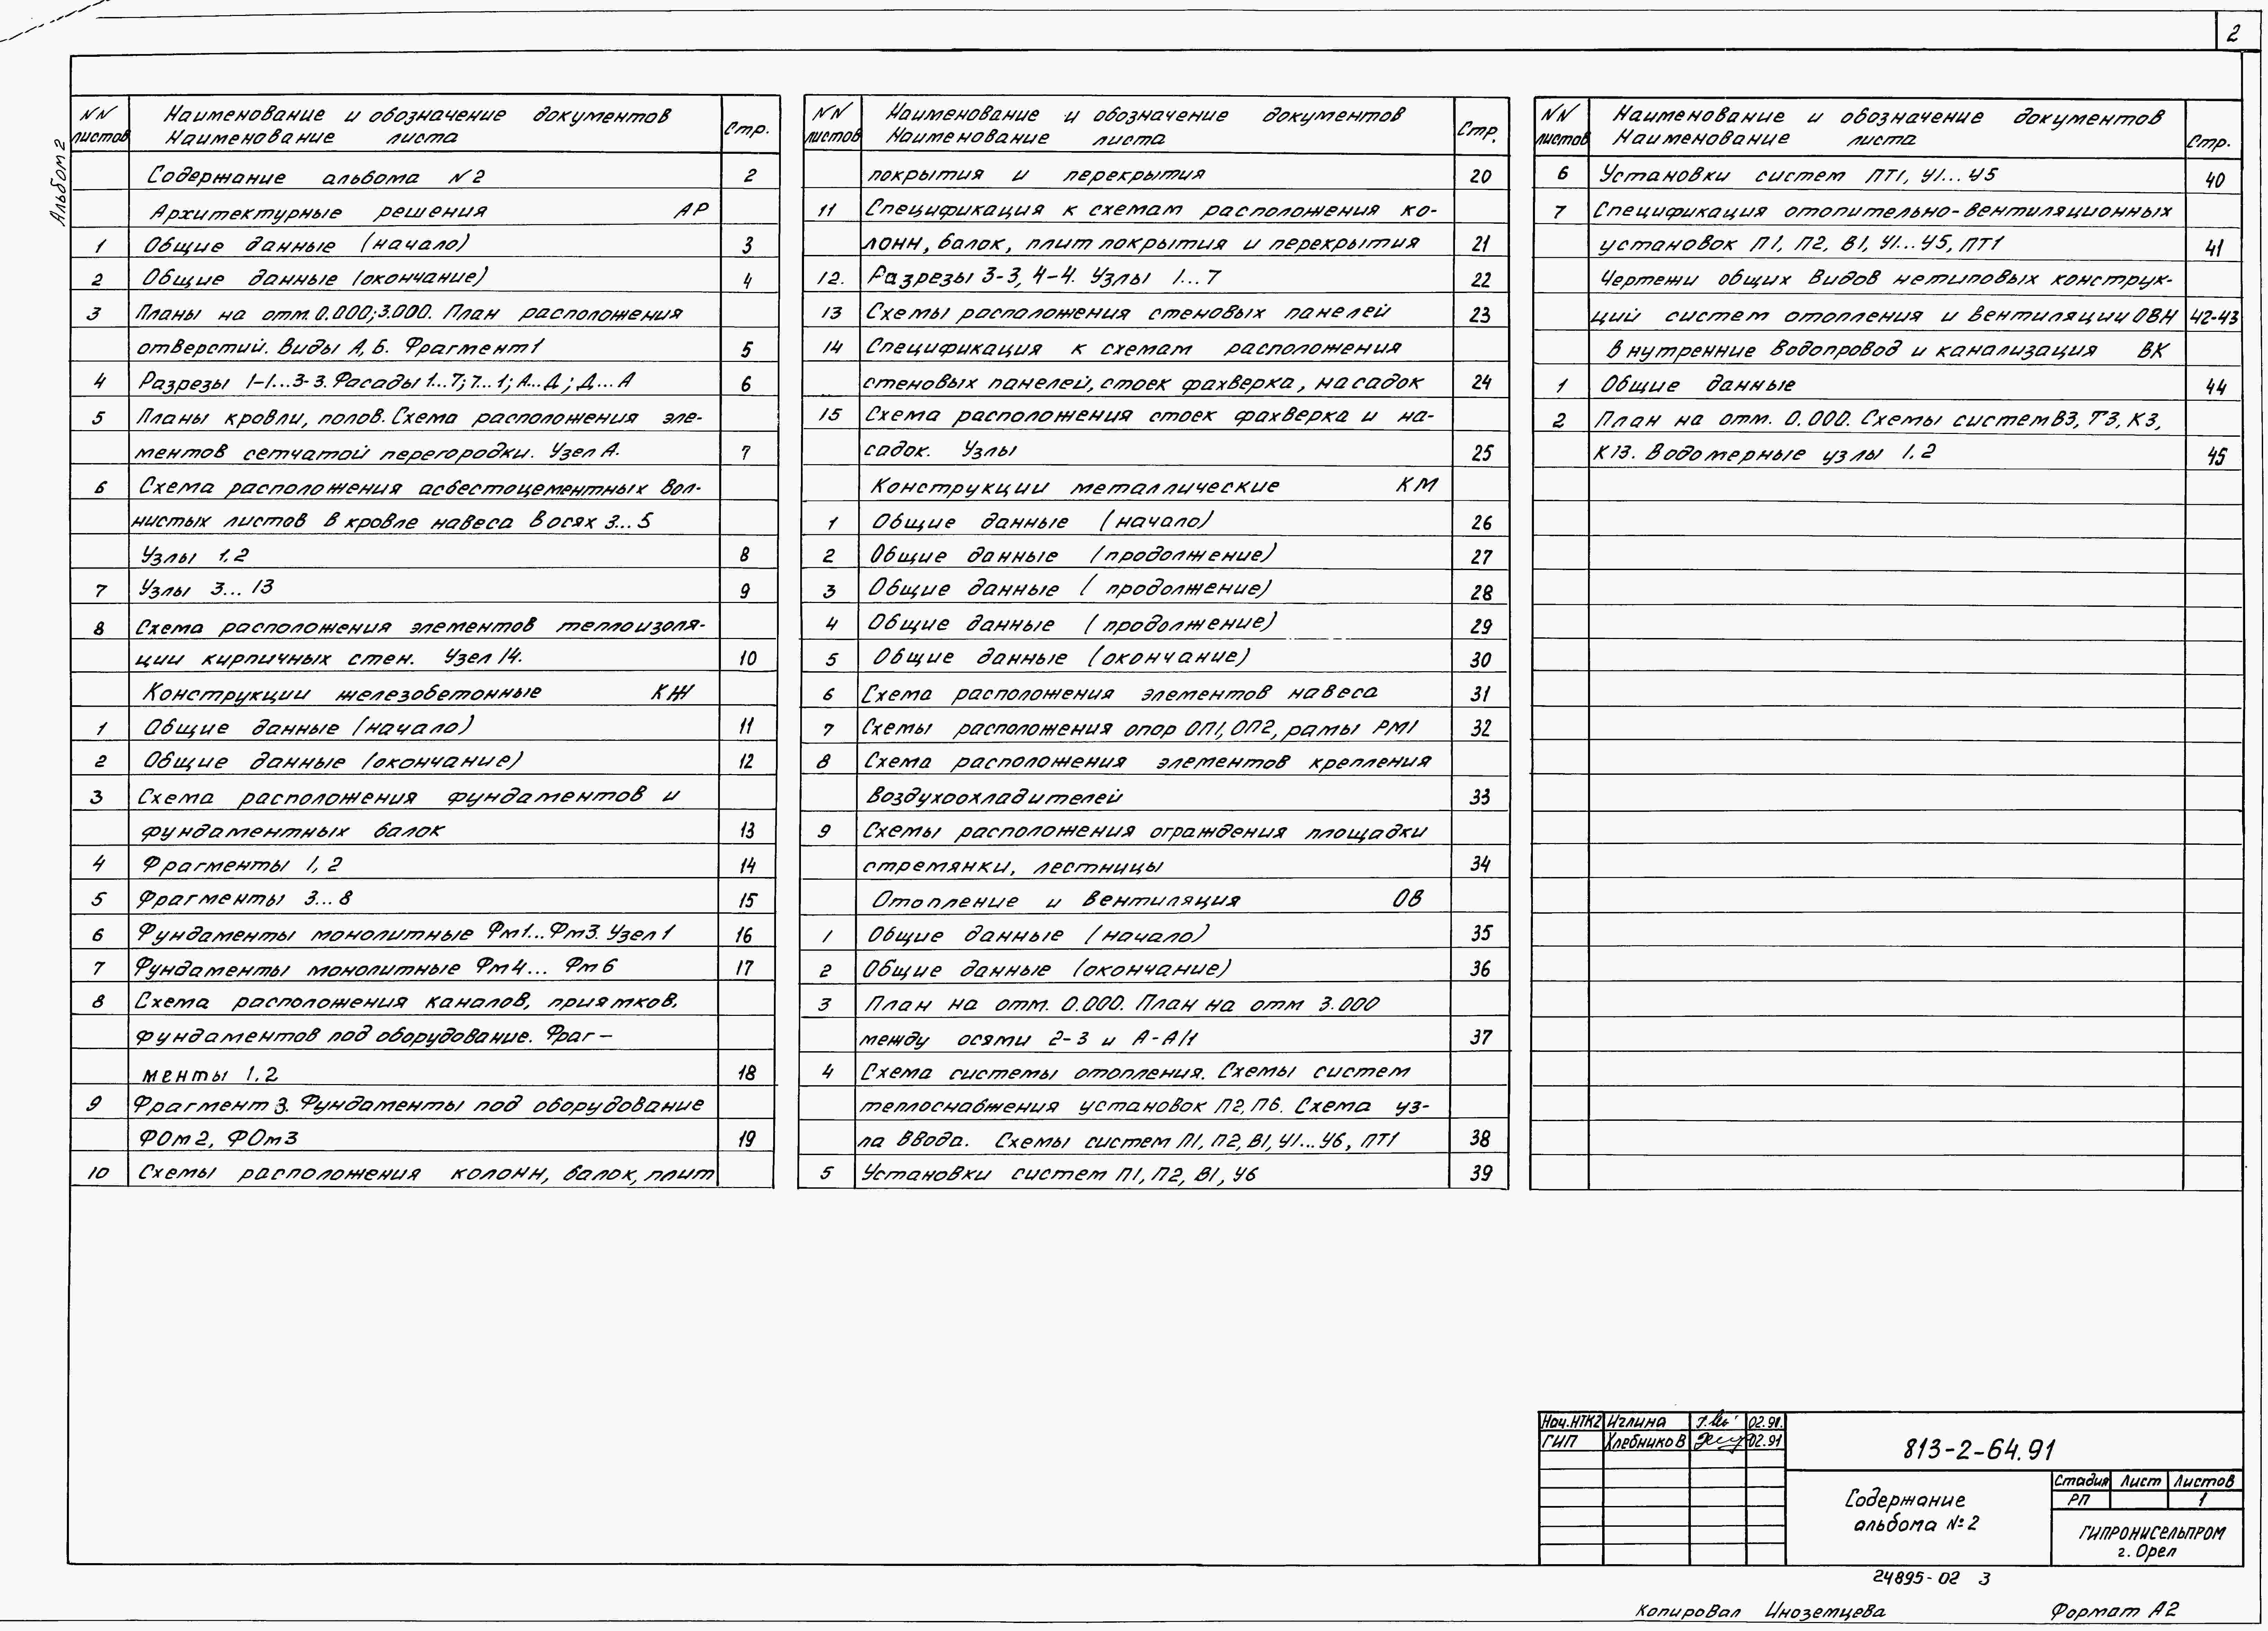 2
Альбом 2
NN листов Наименование и обозначение документов Наименование листа Стр.
Содержание альбома N2 2
Архитектурные решения АР
1 Общие данные (начало) 3
2 Общие данные (окончание) 4
3 Планы на отм. 0.000; 3.000. План расположения
отверстий. Виды А, Б. Фрагмент 1 5
4 Разрезы 1-1...3-3. Фасады 1...7; 7...1; А...Д; Д...А 6
5 Планы кровли, полов. Схема расположения эле-
ментов сетчатой перегородки. Узел А. 7
6 Схема расположения асбестоцементных вол-
нистых листов в кровле навеса в осях 3...5
Узлы 1,2 8
7 Узлы 3...13 9
8 Схема расположения элементов теплоизоля-
ции кирпичных стен. Узел 14. 10
Конструкции железобетонные КЖ
1 Общие данные (начало) 11
2 Общие данные (окончание) 12
3 Схема расположения фундаментов и
фундаментных балок 13
4 Фрагменты 1, 2 14
5 Фрагменты 3...8 15
6 Фундаменты монолитные Фм1...Фм3. Узел 1 16
7 Фундаменты монолитные Фм4... Фм6 17
8 Схема расположения каналов, приямков,
фундаментов под оборудование. Фраг-
менты 1,2 18
9 Фрагмент 3. Фундаменты под оборудование
ФОм2, ФОм3 19
10 Схемы расположения колонн, балок, плит
NN листов Наименование и обозначение документов Наименование листа Стр.
покрытия и перекрытия 20
11 Спецификация к схемам расположения ко-
лонн, балок, плит покрытия и перекрытия 21
12. Разрезы 3-3, 4-4. Узлы 1...7 22
13 Схемы расположения стеновых панелей 23
14 Спецификация к схемам расположения
стеновых панелей, стоек фахверка, насадок 24
15 Схема расположения стоек фахверка и на-
садок. Узлы 25
Конструкции металлические КМ
1 Общие данные (начало) 26
2 Общие данные (продолжение) 27
3 Общие данные (продолжение) 28
4 Общие данные (продолжение) 29
5 Общие данные (окончание) 30
6 Схема расположения элементов навеса 31
7 Схемы расположения опор ОП1, ОП2, рамы РМ1 32
8 Схема расположения элементов крепления
воздухоохладителей 33
9 Схемы расположения ограждения площадки
стремянки, лестницы 34
Отопление и вентиляция ОВ
1 Общие данные (начало) 35
2 Общие данные (окончание) 36
3 План на отм. 0.000. План на отм 3.000
между осями 2-3 и А-А/1 37
4 Схема системы отопления. Схемы систем
теплоснабжения установок П2, П6. Схема уз-
ла ввода. Схемы систем П1, П2, В1, У1...У6, ПТ1 38
5 Установки систем П1, П2, В1, У6 39
NN листов Наименование и обозначение документов Наименование листа Стр.
6 Установки систем ПТ1, У1...У5 40
7 Спецификация отопительно-вентиляционных
установок П1, П2, В1, У1...У5, ПТ1 41
Чертежи общих видов нетиповых конструк-
ций систем отопления и вентиляции ОВН 42-43
Внутренние водопровод и канализация ВК
1 Общие данные 44
2 План на отм. 0.000. Схемы систем В3, Т3, К3,
К13. Водомерные узлы 1.2 45
Нач.НТК2 Иглина 02.91.
ГИП Хлебников 02.91
813-2-64.91
Содержание
альбома №2
Стадия Лист Листов
РП 1
ГИПРОНИСЕЛЬПРОМ
г. Орел
24895-02 3
Копировал Иноземцева Формат А2